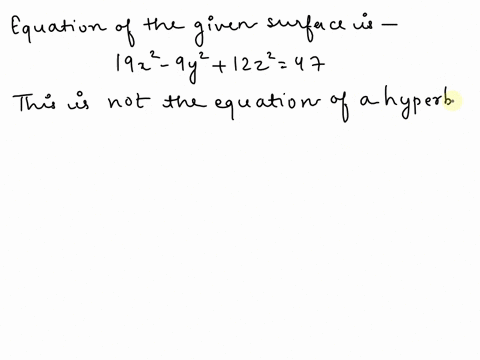 Equation of the given surface is —
19x² - 9y² + 12z² = 47
This is not the equation of a hyperb